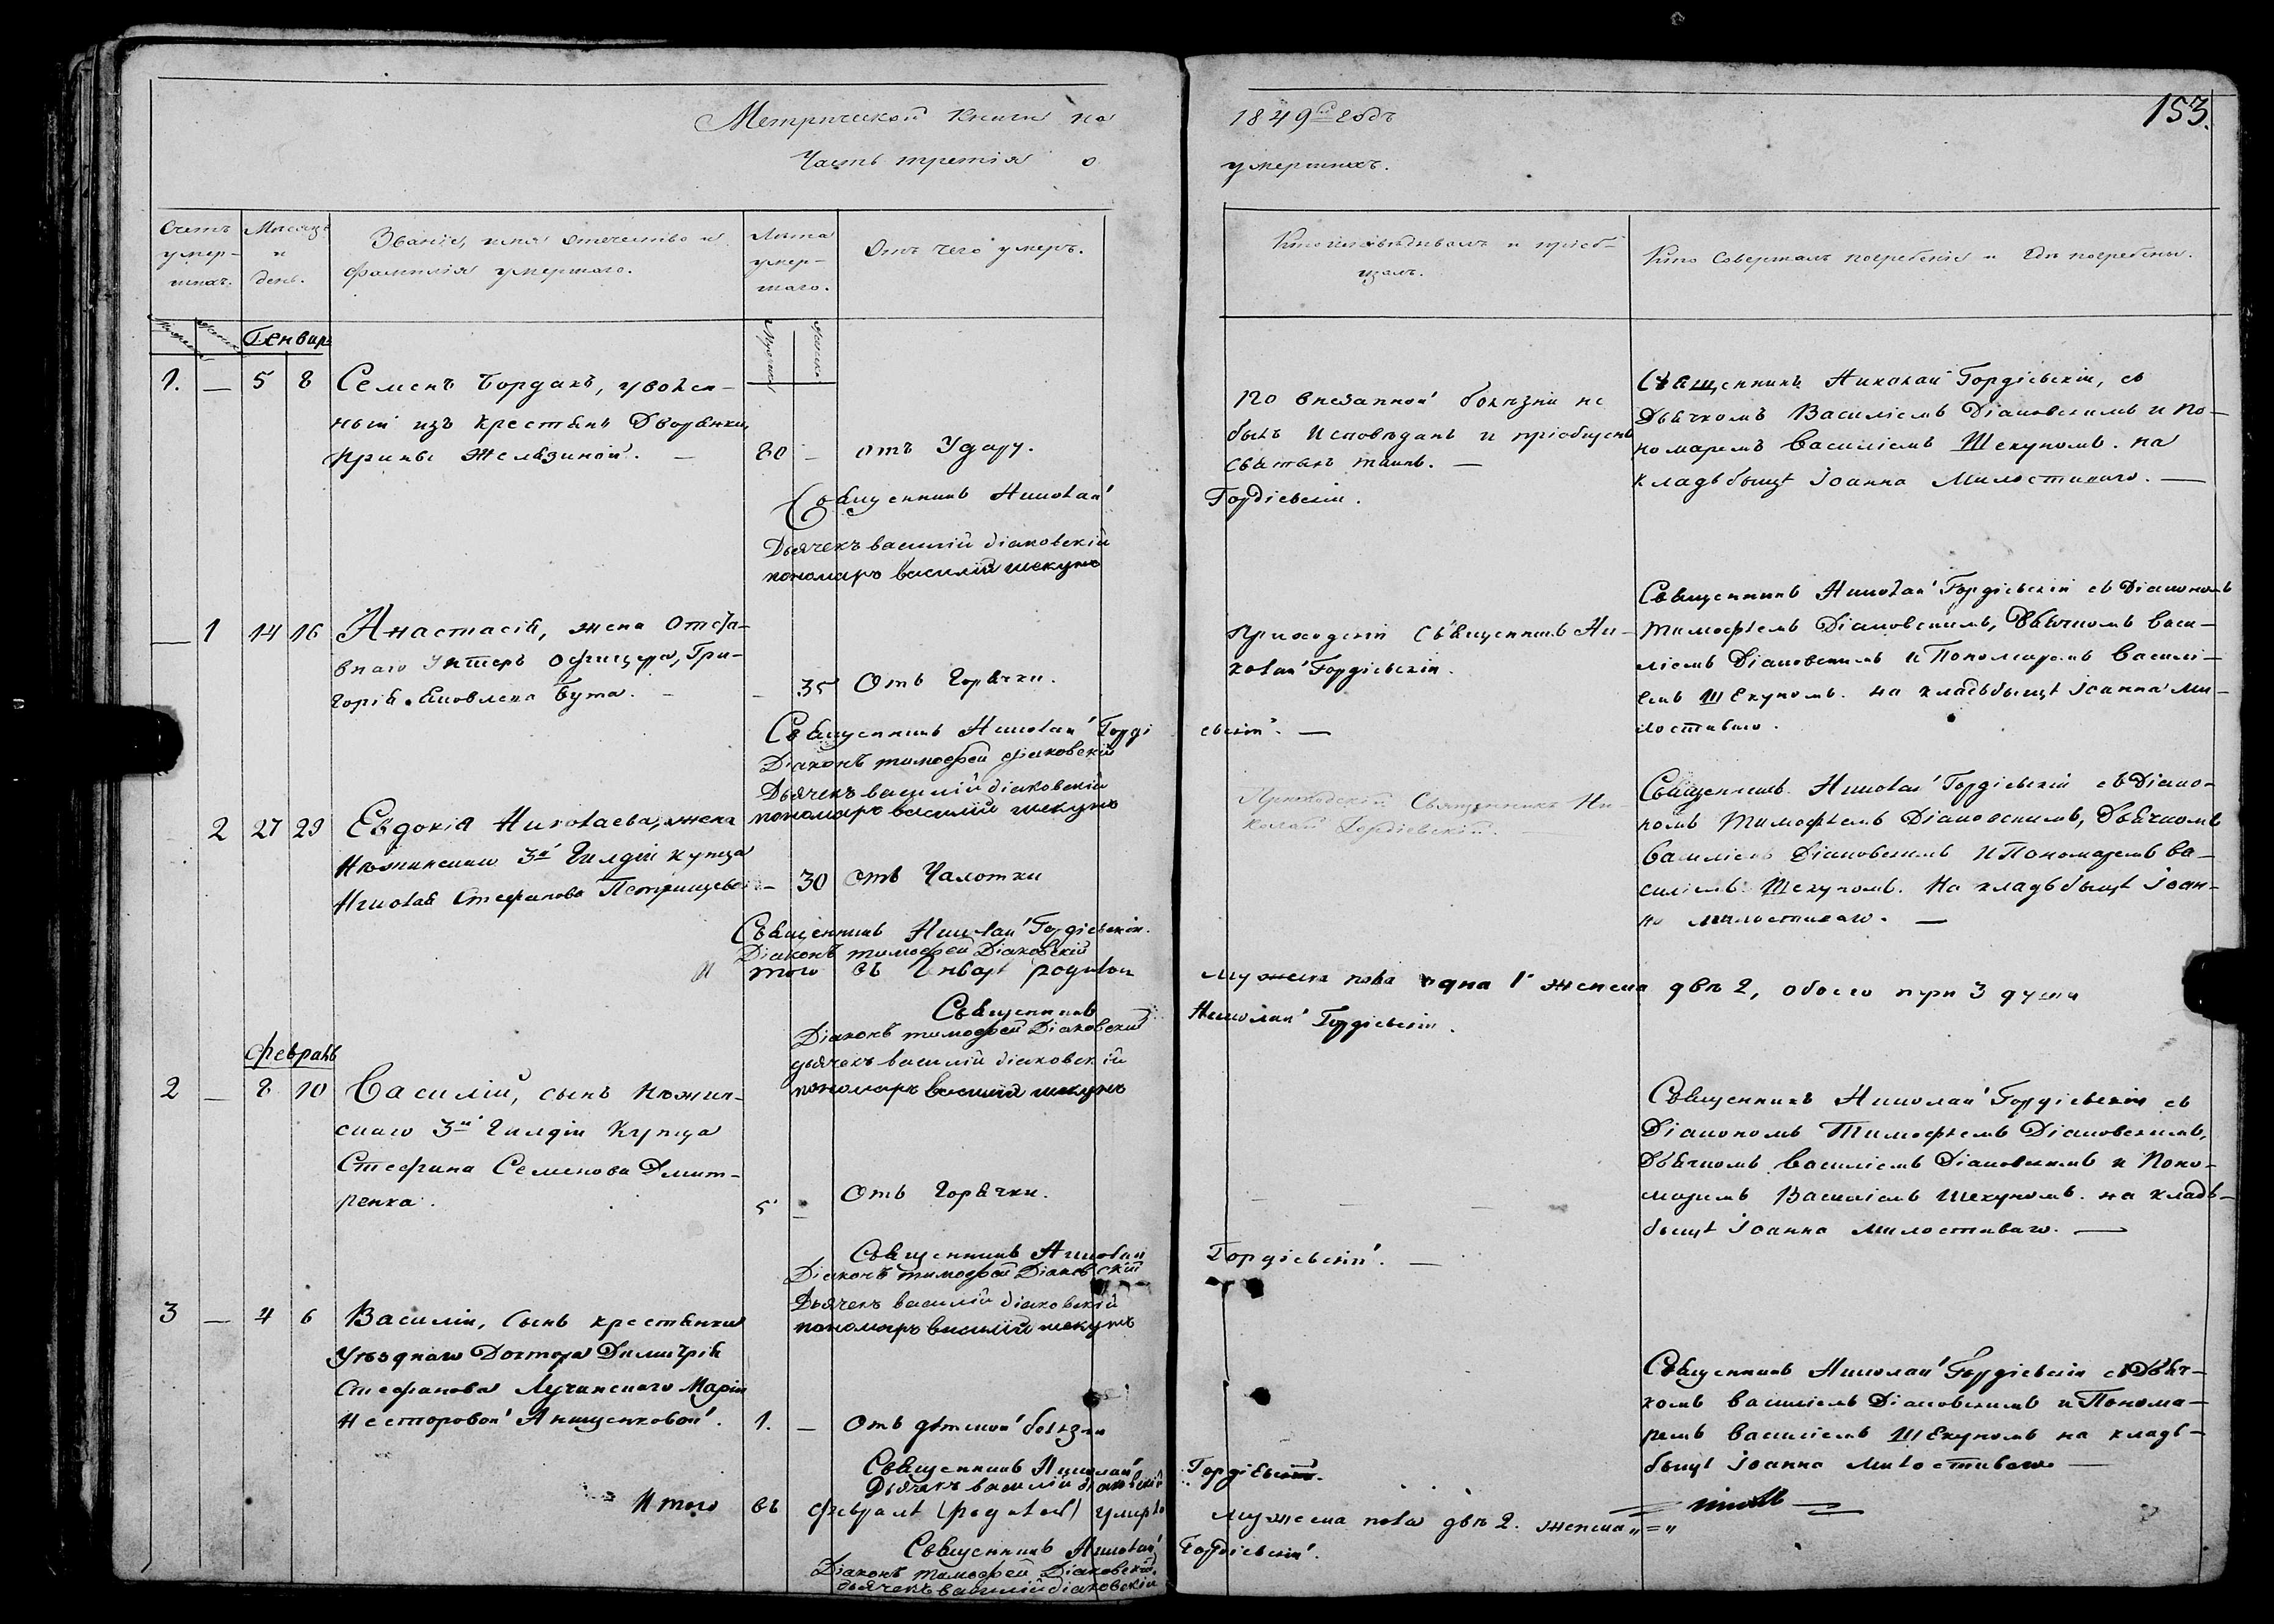 Метрической Книги на 1849й годъ
153.
Часть третія о умершихъ.
Счетъ умер-
шихъ.
Мѣсяцъ
и
день.
Званіе, имя отечество и
фамилія умершаго.
Лѣта
умер-
шаго.
Отъ чего умеръ.
Кто исповѣдывалъ и пріоб-
щалъ.
Кто Совершалъ погребеніе и гдѣ погребены.
Генвар
1. — 5 8
Семенъ Бордакъ, уволен-
ный изъ крестянъ Дворянки
Ирины Желѣзиной. —
80 — отъ Удару.
По внезапной болѣзни не
былъ Исповѣданъ и пріобщенъ
святыхъ таинъ. —
Священникъ Николай Гордіевскій, съ
Дьячкомъ Василіемъ Діаковскимъ и По-
номаремъ Василіемъ Шекуномъ. на
кладьбыщѣ Іоанна Милостиваго. —
Священникъ Николай Гордіевскій.
Дьячекъ василий діаковскій
пономаръ василий шекунъ
— 1 14 16
Анастасія, жена Отста-
внаго Унтеръ офицера, Гри-
горія Яковлева Бута. —
— 35 Отъ Горячки.
Приходскій Священникъ Ни-
колай Гордіевскій.
Священникъ Николай Гордіевскій съ Діакономъ
Тимофѣемъ Діаковскимъ, Дьячкомъ Васи-
ліемъ Діаковскимъ и Пономаремъ Василі-
емъ Шекуномъ. на кладьбыщѣ Іоанна Ми-
лостиваго.
Священникъ Николай Гордіевскій. —
Діаконъ тимофей діаковскій
Дьячекъ василий діаковскій
пономаръ василий шекунъ
2 27 29
Евдокія Николаева, жена
Нѣжинскаго 3й Гилдіи купца
Николая Стефанова
— 30 отъ Чахотки
Приходскій Священникъ Ни-
колай Гордіевскій.
Священникъ Николай Гордіевскій съ Діако-
номъ Тимофѣемъ Діаковскимъ, Дьячкомъ
Василіемъ Діаковскимъ и Пономаремъ Ва-
силіемъ Шекуномъ. На кладьбыщѣ Іоан-
на милостиваго. —
Священникъ Николай Гордіевскій.
Діаконъ тимофей Діаковскій
И того въ Генварѣ мужеска пола одна 1 женска двѣ 2, обоего три 3 души
Священникъ Николай Гордіевскій.
Діаконъ тимофей Діаковский
дьячекъ василій діаковскій
пономаръ василий шекунъ
февраль
2 — 8 10
Василій, сынъ Нѣжин-
скаго 3й Гилдіи Купца
Стефана Семенова Дмит-
ренка.
5 — Отъ Горячки.
Священникъ Николай Гордіевскій съ
Діакономъ Тимофѣемъ Діаковскимъ,
Дьячкомъ Василіемъ Діаковскимъ и Поно-
маремъ Василіемъ Шекуномъ. на кладь-
быщѣ Іоанна милостиваго. —
Священникъ Николай Гордіевскій. —
Діаконъ тимофей Діаковский
Дьячекъ василій діаковскій
пономаръ василий шекунъ
3 — 4 6
Василій, сынъ крестянки
Уѣзднаго Доктора Димитрія
Стефанова Лучанскаго Маріи
Несторовой Анищенковой.
1. — Отъ дѣтской болѣзни
Священникъ Николай Гордіевскій съ Дьяч-
комъ Василіемъ Діаковскимъ и Понома-
ремъ Василіемъ Шекуномъ на кладь-
быщѣ Іоанна Милостиваго —
Священникъ Николай Гордіевскій.
Дьячекъ василій діаковскій
И того въ февралѣ умерло мужеска пола двѣ 2. женска „=„
Священникъ Николай Гордіевскій.
Діаконъ тимофей Діаковский.
дьячекъ василий діаковскій